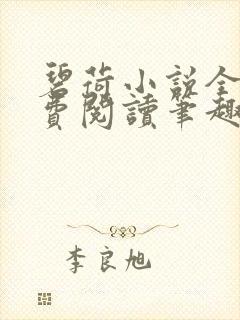 碧荷小説全
費閱讀筆趣
李良旭